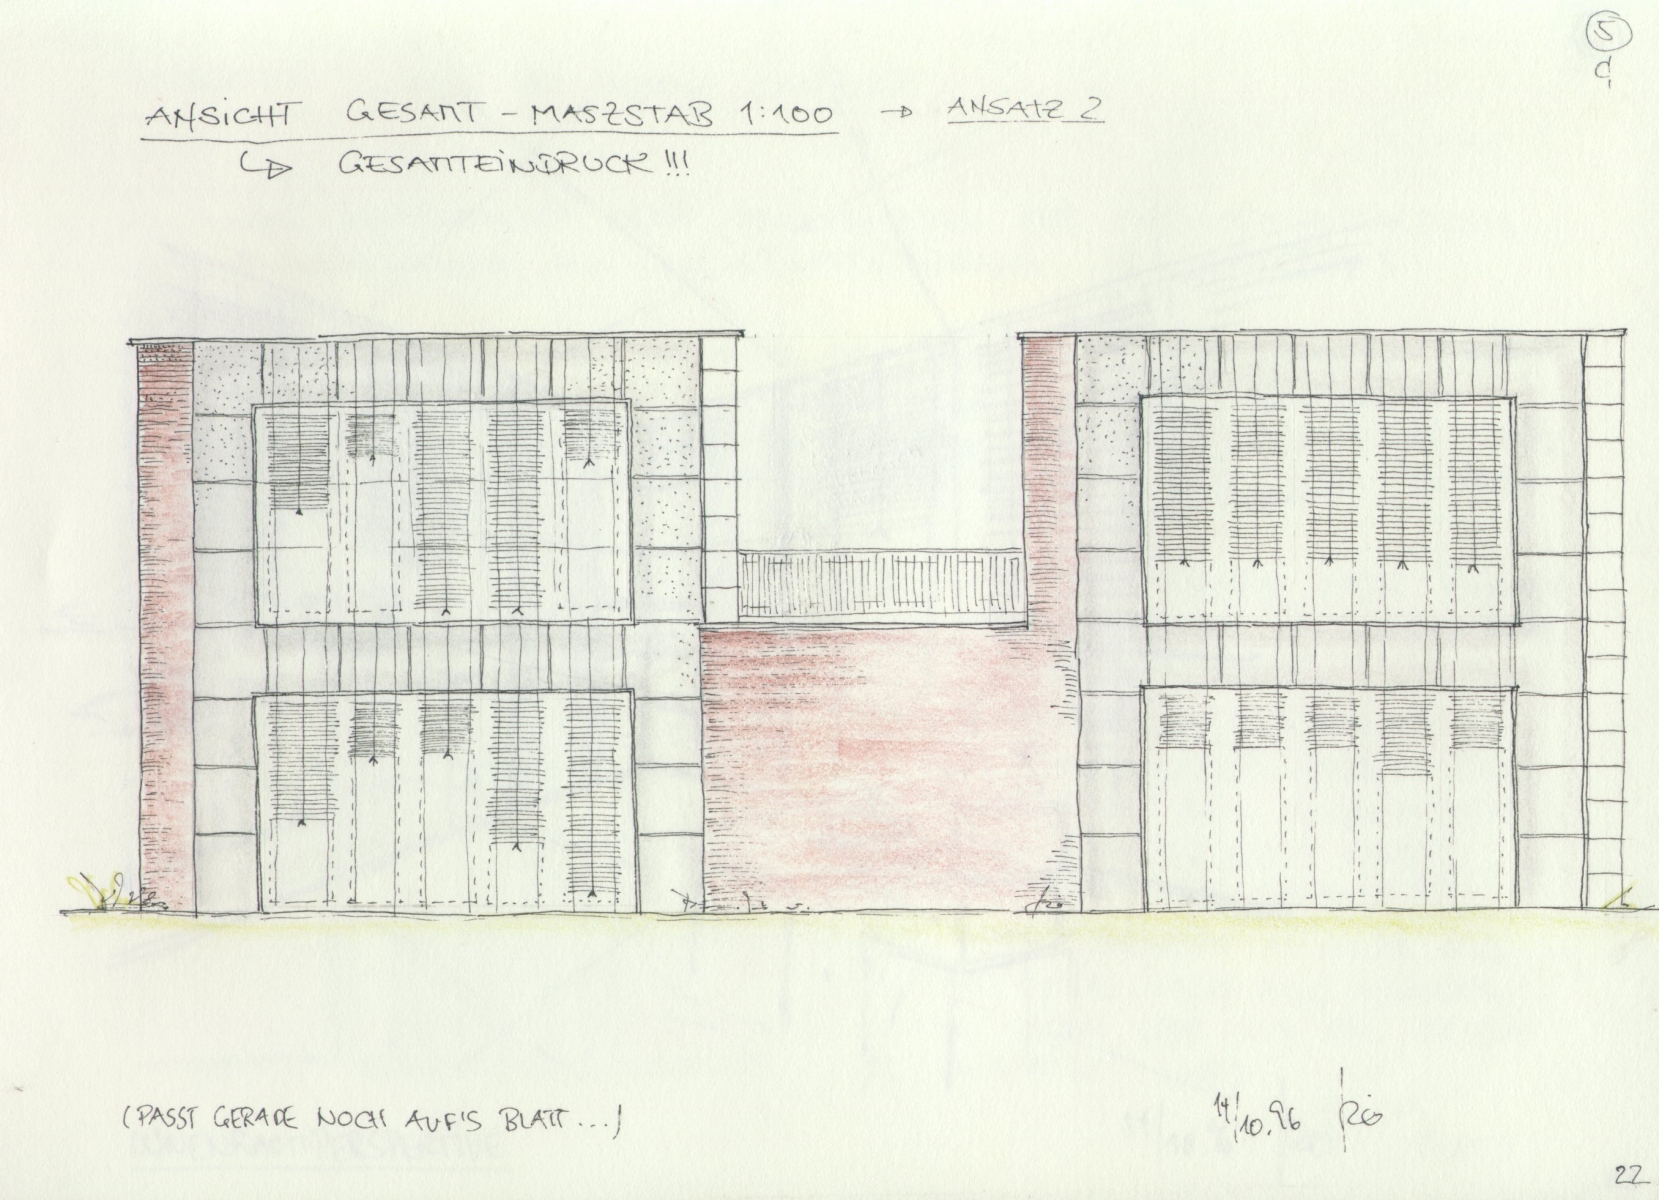 5
d
ANSICHT GESAMT - MASZSTAB 1:100 → ANSATZ 2
↳ GESAMTEINDRUCK !!!
(PASST GERADE NOCH AUF'S BLATT...)
14/10.96
22